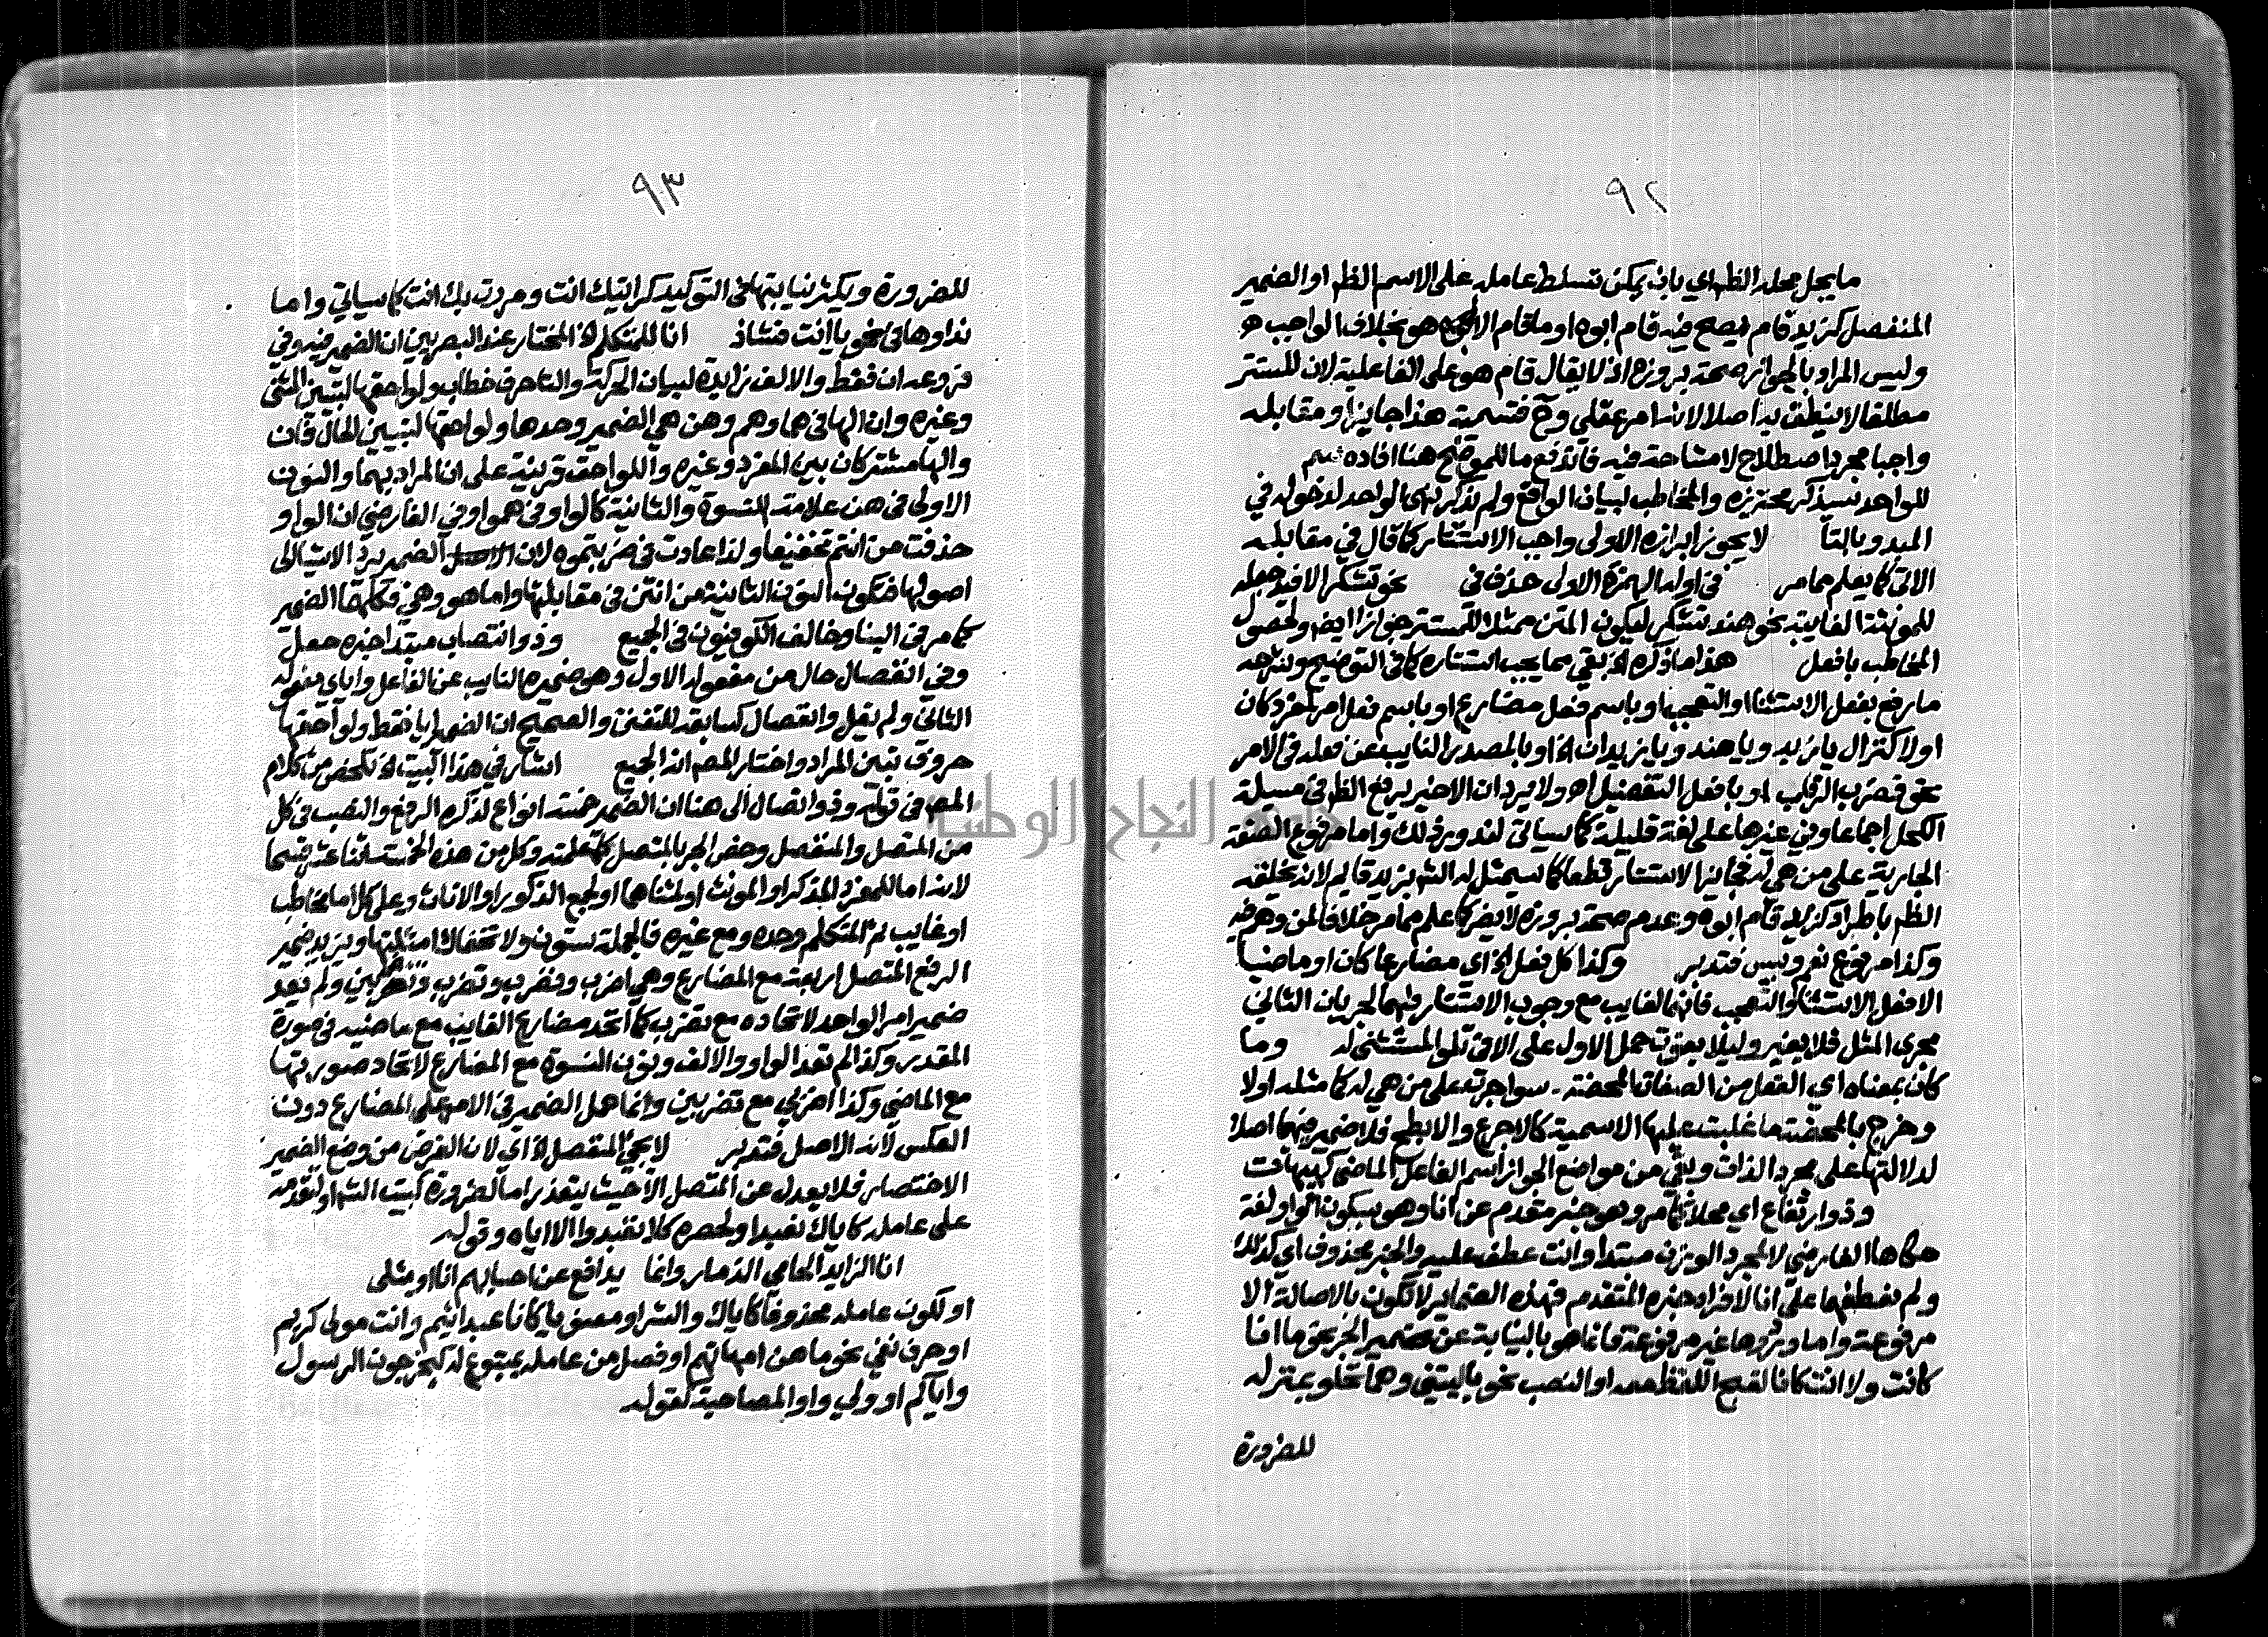 ٩٢
ما يحل محله الظم اي بان يمكن تسلط عامله على الاسم الظم او الضمير
المنفصل كزيد قام يصح فيه قام ابوه او ما قام الا هو بخلاف الواجب هو
وليس المراد بالجواز صحة بروزه اذ لا يقال قام هو على الفاعلية لان المستتر
مطلقا لا ينطق به اصلا لانه امر عقلي وح فتسمية هذا جايزا ومقابله
واجبا مجرد اصطلاح لا مشاحة فيه فاندفع ما للموضح هنا افاده سم
للواحد سيذكر محترزه والمخاطب لبيان الواقع ولم يذكر نهي الواحد لدخوله في
المبدو بالتا لا يجوز ابرازه الاولى واجب الاستتار كما قال في مقابله
الاتي كما يعلم مما مر في اوله الهمزة الاولى حذف في نحو تشكر الا فد جعله
للمونثة الغايبة نحو هند تشكر ليكون المتن ممثلا للمستتر جوازا ايضا ولحصول
المخاطب بافعل هذا ما ذكره الخ بقي مما يجب استتاره كما في التوضيح
ما رفع بفعل الاستثنا او التعجب او باسم فعل مضارع او باسم فعل امر لمفرد كان
اولا كنزال يا زيد ويا هند ويا زيدان الخ او بالمصدر النايب عن فعله في الامر
نحو فضرب الرقاب او بافعل التفضيل اه ولا يرد ان الاخير يرفع الظم في مسيلة
الكحل اجماعا وفي غيرها على لغة قليلة كما سياتي لندور ذلك واما مرفوع الصفة
الجارية على من هي له فجايز الاستتار قطعا كما سيمثل له الش بزيد قايم لانه يخلفه
الظم باطراد كزيد قام ابوه وعدم صحة بروزه لا يضر كما علم مما مر خلافا لمن وهم فيه
وكذا مرفوع نعم وبيس فتدبر وكذا كل فعل الخ اي مضارعا كان او ماضيا
الا فعل الاستثنا والتعجب فانهما لغايب مع وجوب الاستتار فيهما لجريان الثاني
مجرى المثل فلا يغير وليلا يفوت حمل الاول على الا في تلو المستثنى له وما
كان بمعناه اي الفعل من الصفات المحضة سوا جرت على من هي له كما مثله اولا
وخرج بالمحضة ما غلبت عليها الاسمية كالاجرع والابطح فلا ضمير فيها اصلا
لدلالتها على مجرد الذات وبقي من مواضع الجواز اسم الفاعل الماضي كهيهات
وذو ارتفاع اي محلا كما مر وهو خبر مقدم عن انا وهو بسكون الواو لغة
حكاها الفارضي لا لمجرد الوزن مبتدا وانت عطف عليه والخبر محذوف اي كذلك
ولم نعطفهما على انا لافراد خبره المتقدم فهذه الضماير لا تكون بالاصالة الا
مرفوعة واما ورودها غير مرفوعة فانما هو بالنيابة عن ضمير الجر نحو ما انا
كانت ولا انت كانا او النصب نحو يا ليتني وهما نخلو بمنزله
للضرورة
٩٣
للضرورة ويكثر نيابتها في التوكيد كرايتك انت ومررت بك انت كما سياتي واما
نداوها في نحو يا انت فشاذ انا للمتكلم الخ المختار عند البصريين ان الضمير فيه وفي
فروعه ان فقط والالف زايدة لبيان الحركة والتا حرف خطاب ولواحقها لتبيين المثنى
وغيره وان الها في هما وهم وهن هي الضمير وحدها ولواحقها لتبيين الحال فان
والها مشتركان بين المفرد وغيره واللواحق قرينة على ان المراد بهما والنون
الاولى في هن علامة النسوة والثانية كالواو في همو وفي الفارضي ان الواو
حذفت من انتم تخفيفا ولذا عادت في ضربتموه لان الضمير يرد الاشيا الى
اصولها فتكون النون الثانية من انتن في مقابلتها واما هو وهي فكلها الضمير
كما مر في البنا وخالف الكوفيون في الجميع وذو انتصاب مبتدا خبره جعل
وفي انفصال حال من مفعوله الاول وهو ضميره النايب عن الفاعل واياي مفعوله
الثاني ولم يقل وانفصال كسابقه للتفنن والصحيح ان الضمير ايا فقط ولواحقها
حروف تبين المراد واختار المص انه الجميع اشار في هذا البيت الخ تلخص من كلام
المص في قوله وذو اتصال الى هنا ان الضمير خمسة انواع لذكره الرفع والنصب في كل
من المتصل والمنفصل وخص الجر بالمتصل كما علمته وكل من هذه الخمسة اثنا عشر قسما
لانه اما للمفرد المذكر او المونث او لمثناهما او لجمع الذكور او الاناث وعلى كل اما مخاطب
او غايب ثم المتكلم وحده ومع غيره فالجملة ستون ولا تخفاك امثلتها ويزيد ضمير
الرفع المتصل اربعة مع المضارع وهي اضرب ونضرب وتضرب وتضربين ولم نعد
ضمير امر الواحد لاتحاده مع تضرب كما اتحد مضارع الغايب مع ماضيه في صورة
المقدر وكذا لم نعد الواو والالف ونون النسوة مع المضارع لاتحاد صورتها
مع الماضي وكذا اضربي مع تضربين وانما حمل الضمير في الامر على المضارع دون
العكس لانه الاصل فتدبر لا يجئ المنفصل الخ اي لان الغرض من وضع الضمير
الاختصار فلا يعدل عن المتصل الا حيث يتعذر اما لضرورة كبيت الش او لتقدمه
على عامله كاياك نعبد او لحصره كلا تعبدوا الا اياه وقوله
انا الزايد الحامي الذمار وانما يدافع عن احسابهم انا او مثلي
او لكون عامله محذوفا كاياك والشر او معنويا كانا عبد اثيم وانت مولى كريم
او حرف نفي نحو ما هن امهاتهم او فصل من عامله بمتبوع له كيخرجون الرسول
واياكم او ولي واو المصاحبة كقوله
جامعة النجاح الوطنية